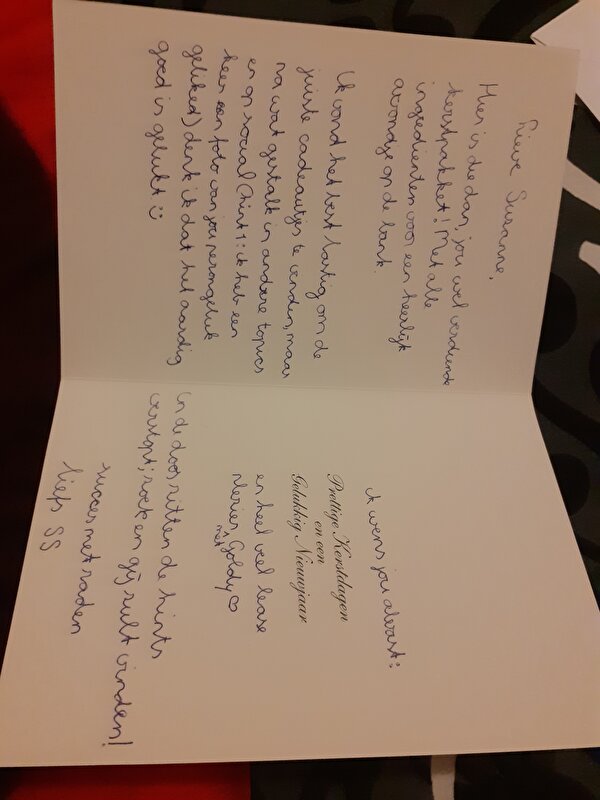 Lieve Susanne,
Hier is die dan, jou wel verdiende
kerstpakket! Met alle
ingredienten voor een heerlijk
avondje op de bank.
Ik vond het best lastig om de
juiste cadeautjes te vinden, maar
na wat gestalk in andere topics
en op social (hint 1: ik heb een
keer een foto van jou perongeluk
geliked) denk ik dat het aardig
goed is gelukt :)
ik wens jou alvast:
Prettige Kerstdagen
en een
Gelukkig Nieuwjaar
en heel veel lease
plezier met Goldy ♡
in de doos zitten de hints
verstopt; zoek en gij zult vinden!
succes met raden
liefs SS